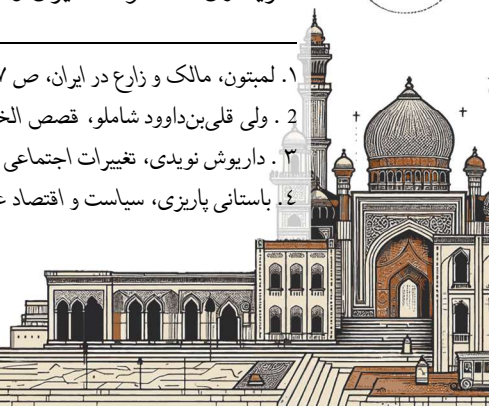 ۱. لمبتون، مالک و زارع در ایران، ص ۷
2. ولی قلی‌بن‌داوود شاملو، قصص الخ
۳. داریوش نویدی، تغییرات اجتماعی
٤. باستانی پاریزی، سیاست و اقتصاد ع